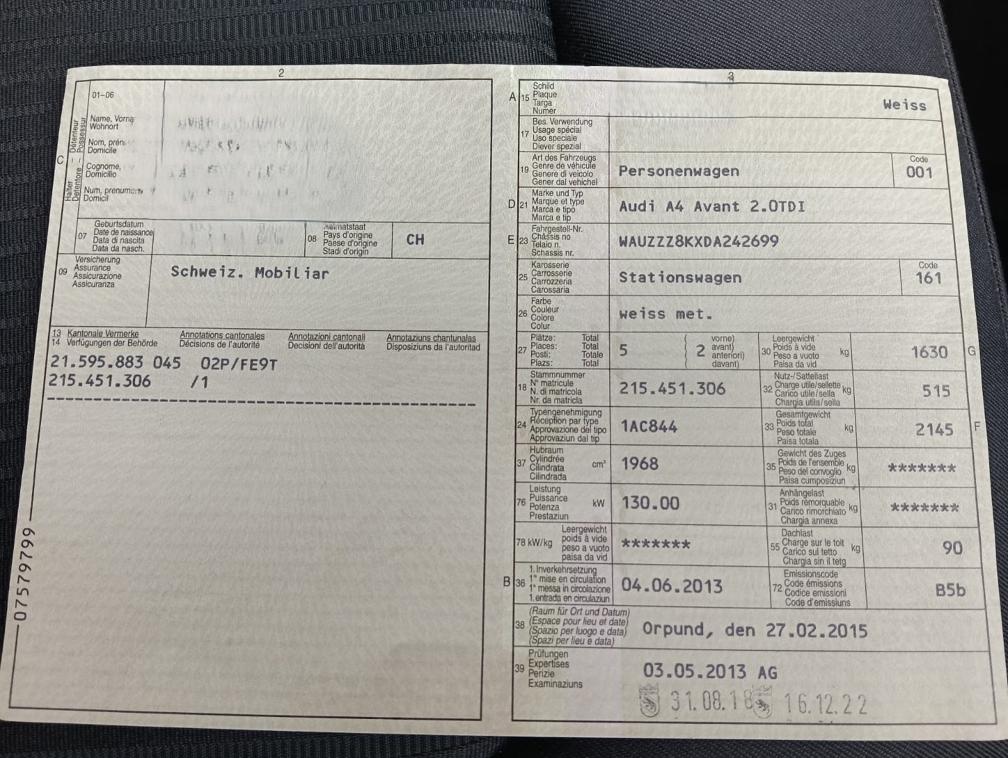 2
01-06
Name, Vorna
Wohnort
Nom, prén
Domicile
Cognome,
Domicilio
Num, prenum
Domicil
C
Halter Détenteur
Detentore Possessur
07
Geburtsdatum
Date de naissance
Data di nascita
Data da nasch.
08
Heimatstaat
Pays d'origine
Paese d'origine
Stadi d'origin
CH
09
Versicherung
Assurance
Assicurazione
Assicuranza
Schweiz. Mobiliar
13 Kantonale Vermerke Annotations cantonales Annotazioni cantonali Annotaziuns chantunalas
14 Verfügungen der Behörde Décisions de l'autorité Decisioni dell'autorità Disposiziuns da l'autoritad
21.595.883 045 02P/FE9T
215.451.306 /1
07579799
3
A 15
Schild
Plaque
Targa
Numer
Weiss
17
Bes. Verwendung
Usage spécial
Uso speciale
Diever spezial
19
Art des Fahrzeugs
Genre de véhicule
Genere di veicolo
Gener dal vehichel
Personenwagen
Code
001
D 21
Marke und Typ
Marque et type
Marca e tipo
Marca e tip
Audi A4 Avant 2.0TDI
E 23
Fahrgestell-Nr.
Châssis no
Telaio n.
Schassis nr.
WAUZZZ8KXDA242699
25
Karosserie
Carrosserie
Carrozzeria
Carossaria
Stationswagen
Code
161
26
Farbe
Couleur
Colore
Colur
weiss met.
27
Plätze: Total
Places: Total
Posti: Totale
Plazs: Total
5
( 2
vorne)
avant)
anteriori)
davant)
30
Leergewicht
Poids à vide
Peso a vuoto
Paisa da vid
kg
1630
G
18
Stammnummer
N° matricule
N. di matricola
Nr. da matricla
215.451.306
32
Nutz-/Sattellast
Charge utile/sellette
Carico utile/sella
Chargia utila/sella
kg
515
24
Typengenehmigung
Réception par type
Approvazione del tipo
Approvaziun dal tip
1AC844
33
Gesamtgewicht
Poids total
Peso totale
Paisa totala
kg
2145
F
37
Hubraum
Cylindrée
Cilindrata
Cilindrada
cm³
1968
35
Gewicht des Zuges
Poids de l'ensemble
Peso del convoglio
Paisa cumposiziun
kg
*******
76
Leistung
Puissance
Potenza
Prestaziun
kW
130.00
31
Anhängelast
Poids remorquable
Carico rimorchiato
Chargia annexa
kg
*******
78 kW/kg
Leergewicht
poids à vide
peso a vuoto
paisa da vid
*******
55
Dachlast
Charge sur le toit
Carico sul tetto
Chargia sin il tetg
kg
90
B 36
1. Inverkehrsetzung
1re mise en circulation
1a messa in circolazione
1. entrada en circulaziun
04.06.2013
72
Emissionscode
Code émissions
Codice emissioni
Code d'emissiuns
B5b
38
(Raum für Ort und Datum)
(Espace pour lieu et date)
(Spazio per luogo e data)
(Spazi per lieu e data)
Orpund, den 27.02.2015
39
Prüfungen
Expertises
Perizie
Examinaziuns
03.05.2013 AG
31.08.18 16.12.22